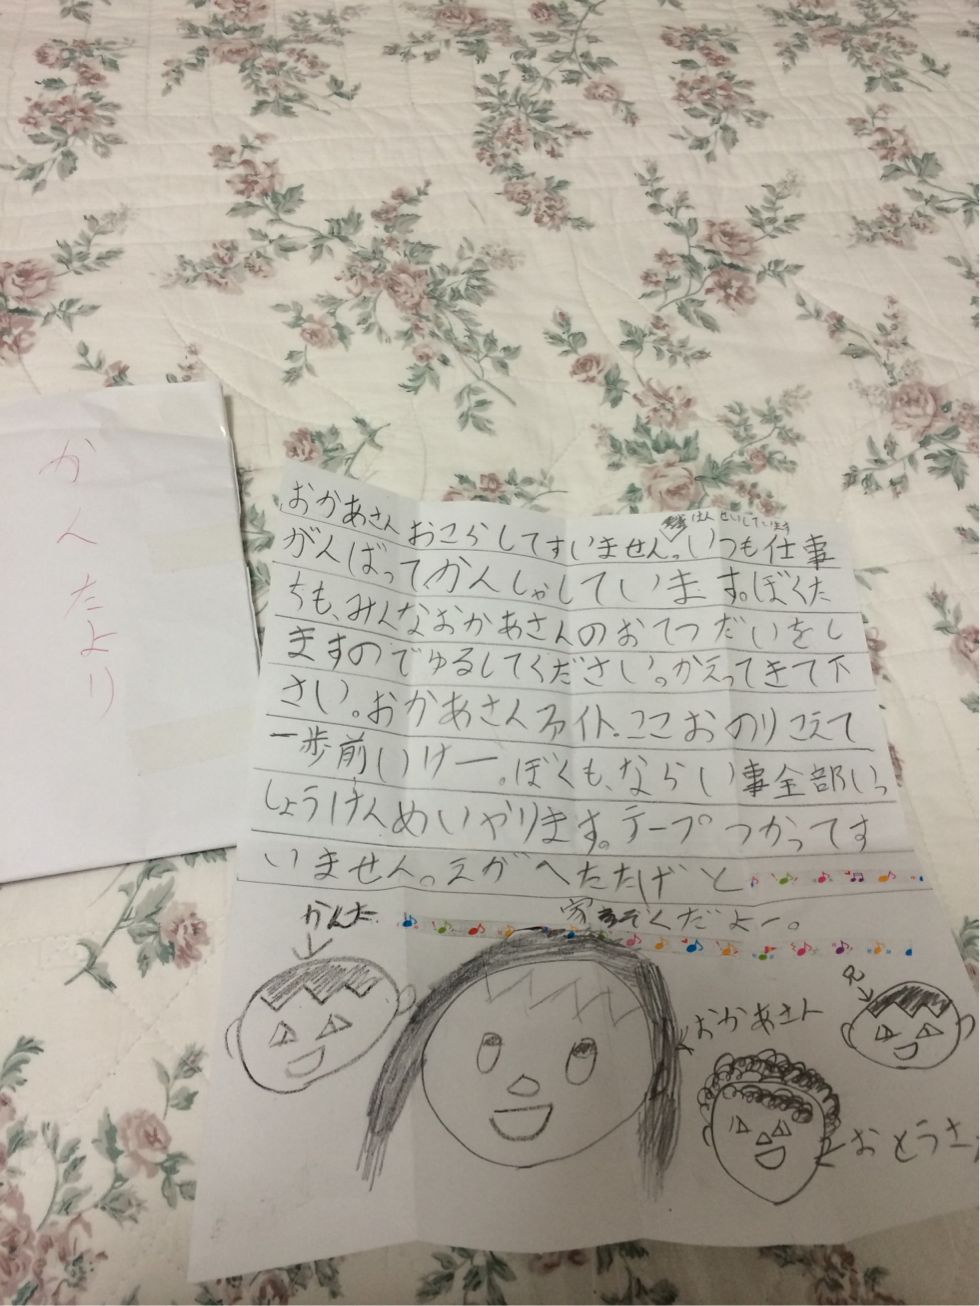 かんたより
はんせいしています
おかあさんおこらしてすいません。いつも仕事
がんばってかんしゃしています。ぼくた
ちも、みんなおかあさんのおてつだいをし
ますのでゆるしてください。かえってきて下
さい。おかあさんファイト。ここおのりこえて
一歩前いけー。ぼくも、ならい事全部いっ
しょうけんめいやります。テープつかってす
いません。えがへたたけど
家ぞくだよー。
かんた
兄
おかあさん
おとうさ